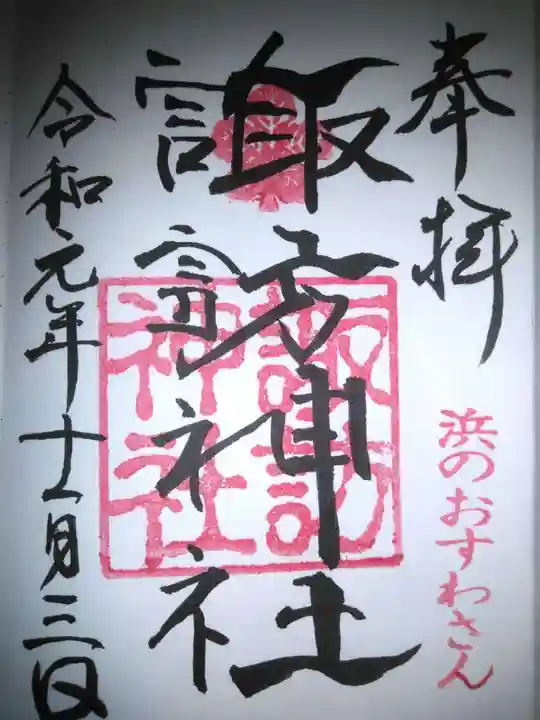 奉拝
浜のおすわさん
諏訪神社
諏訪神社
令和元年十一月三日